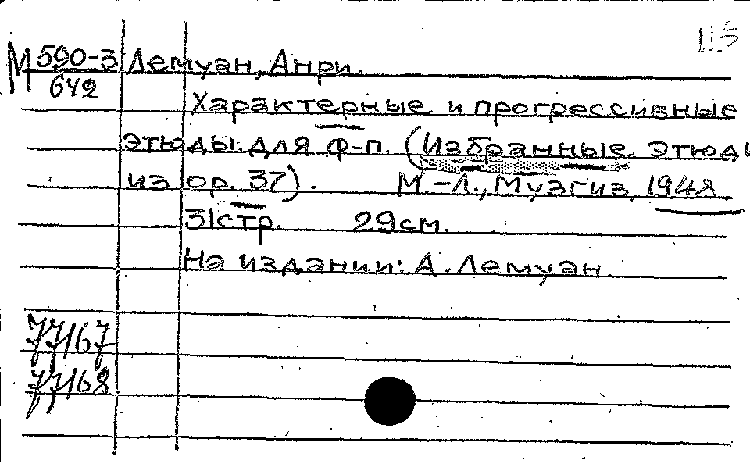 115
М 590-3 Лемуан, Анри.
642
Характерные и прогрессивные
этюды для ф-п. (Избранные этюды
из ор. 37). М.-Л., Музгиз, 1948
31стр. 29см.
На издании: А. Лемуан.
77167
77168